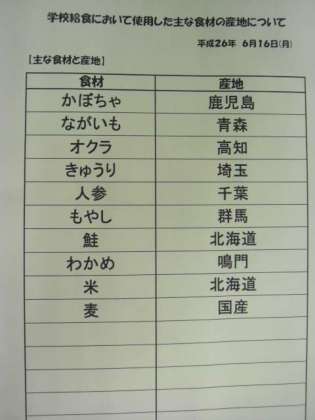 学校給食において使用した主な食材の産地について
平成26年 6月16日(月)
【主な食材と産地】
食材 産地
かぼちゃ 鹿児島
ながいも 青森
オクラ 高知
きゅうり 埼玉
人参 千葉
もやし 群馬
鮭 北海道
わかめ 鳴門
米 北海道
麦 国産